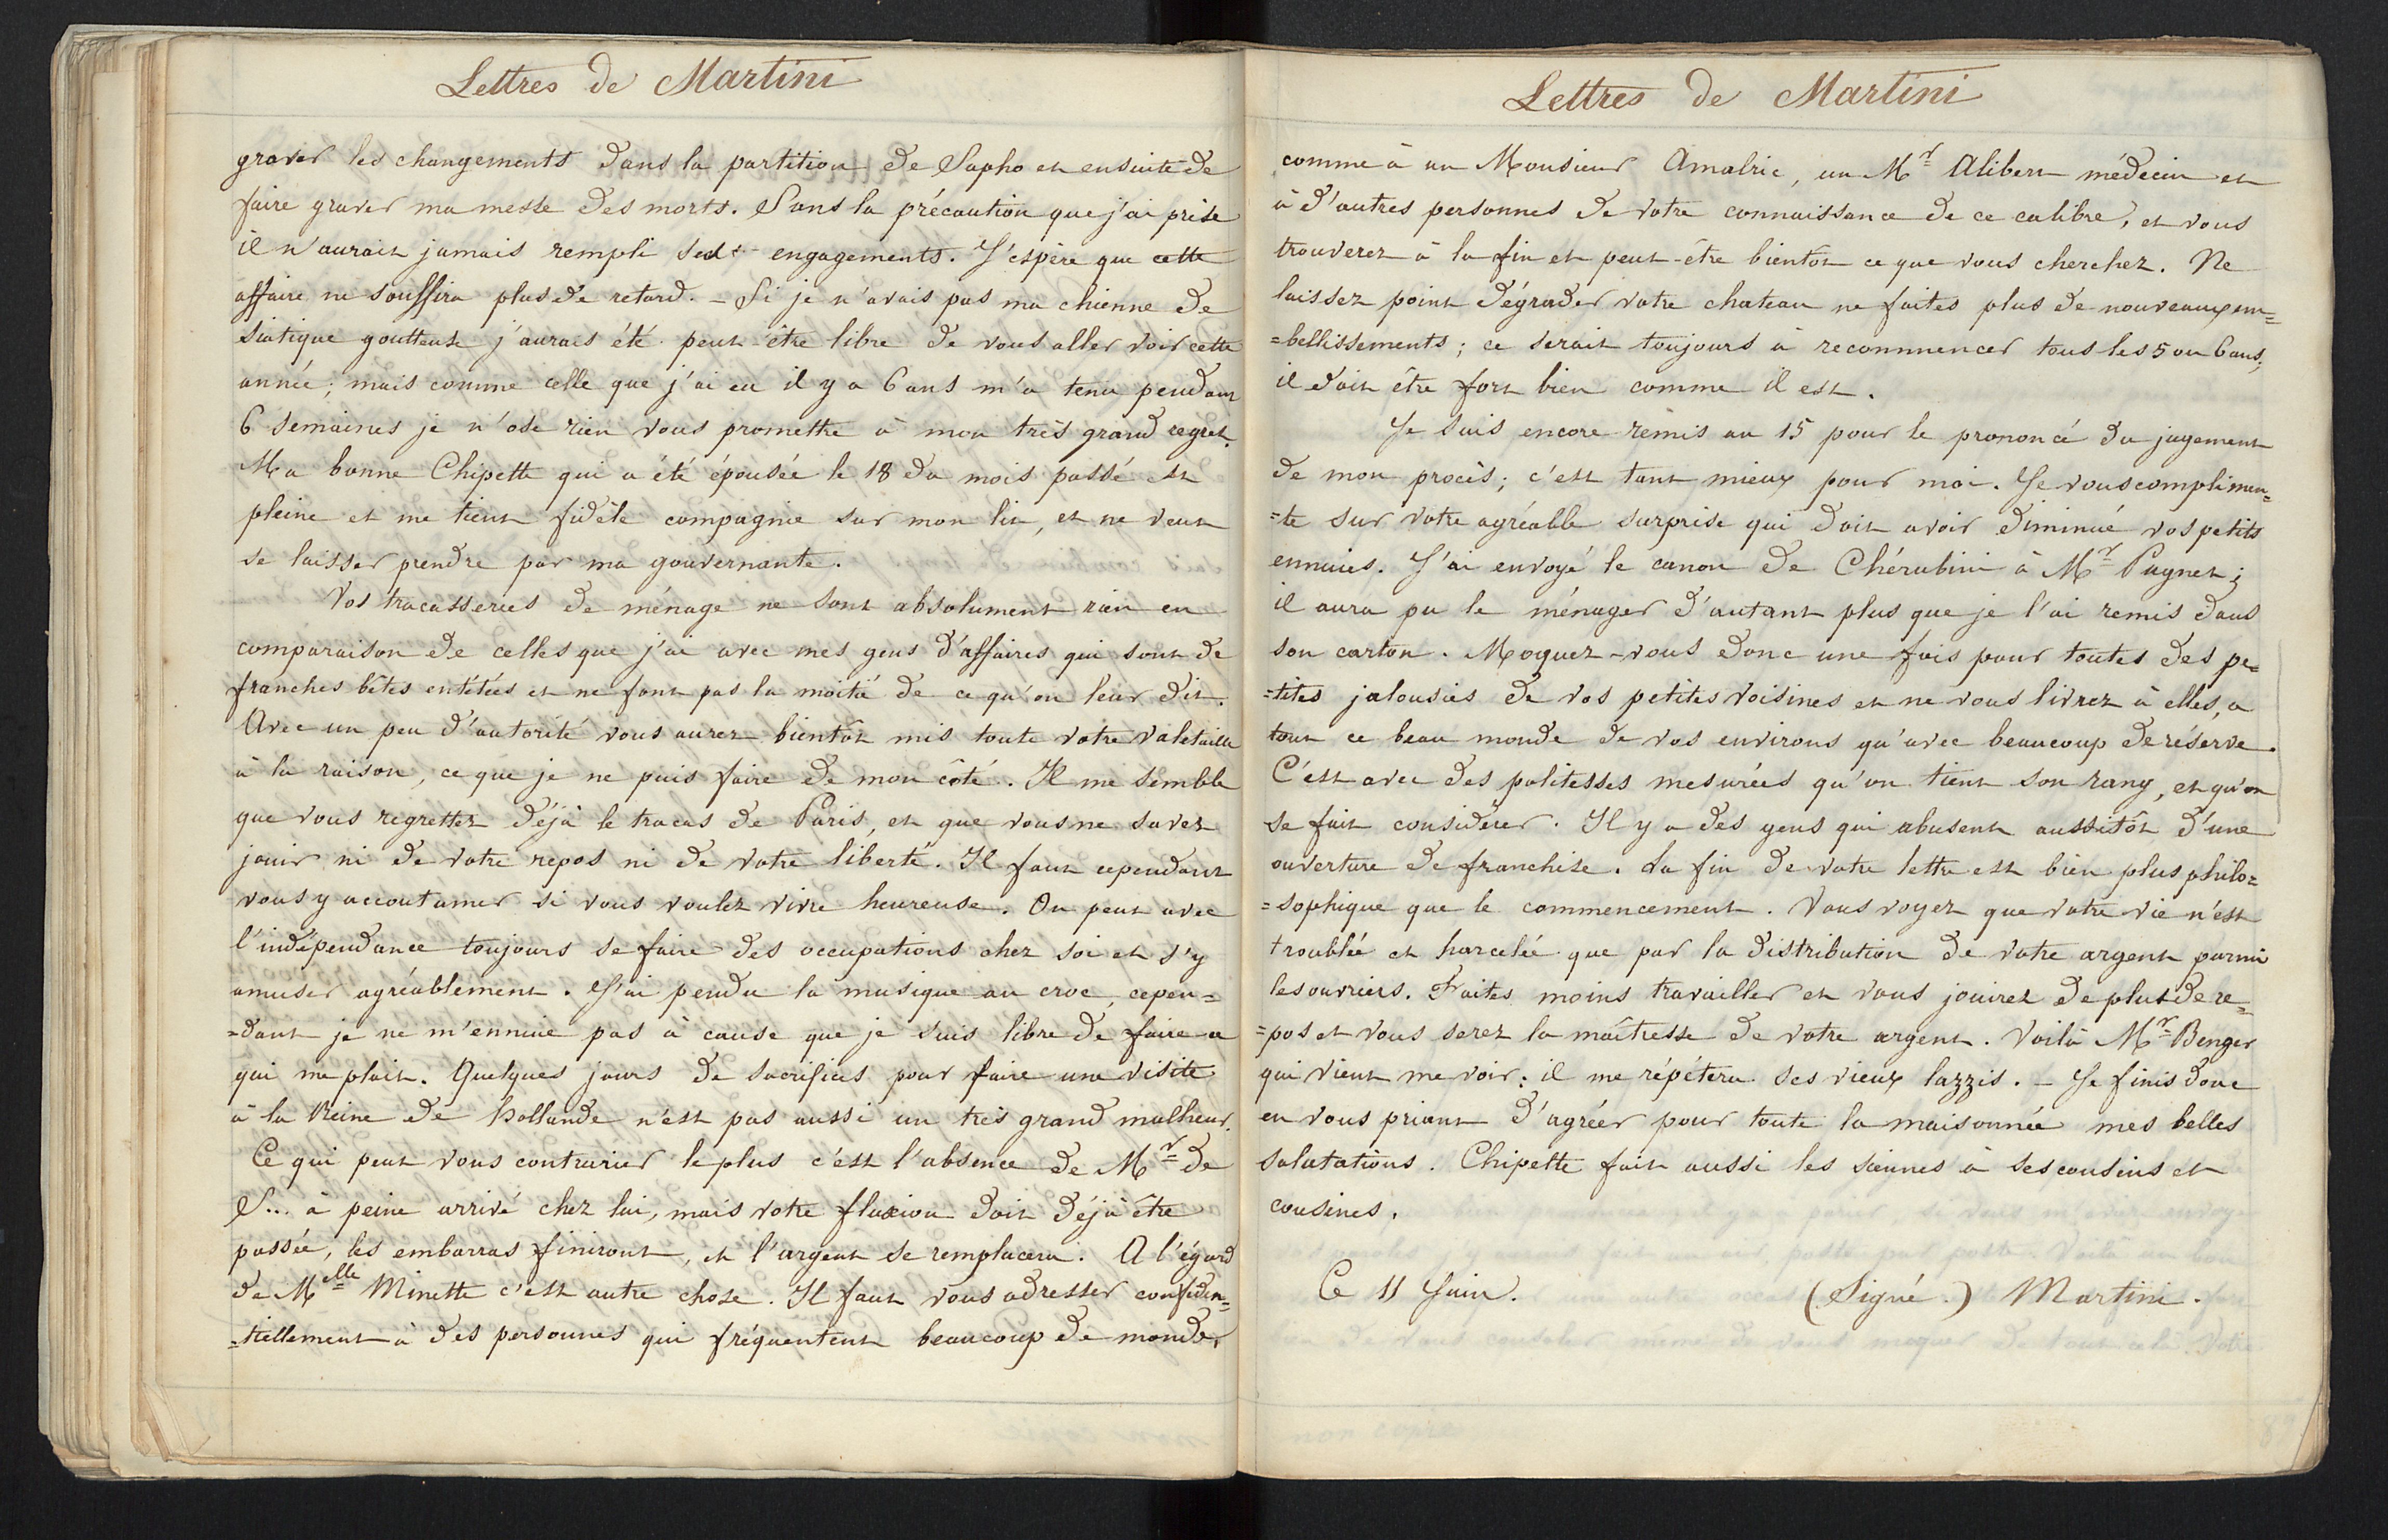 Lettres de Martini
graver les changements dans la partition de Sapho et ensuite de
faire graver ma messe des morts. Sans la précaution que j'ai prise
il n'aurait jamais rempli ses engagements. J'espère que cette
affaire ne souffira plus de retard. – Si je n'avais pas ma chienne de
siatique goutteuse j'aurais été peut-être libre de vous aller voir cette
année; mais comme celle que j'ai eu il y a 6 ans m'a tenu pendant
6 semaines je n'ose rien vous promettre à mon très grand regret.
Ma bonne Chipette qui a été épousée le 18 du mois passé est
pleine et me tient fidèle compagnie sur mon lit, et ne veut
se laisser prendre par ma gouvernante.
Vos tracasseries de ménage ne sont absolument rien en
comparaison de celles que j'ai avec mes gens d'affaires qui sont de
franches bêtes entêtées et ne font pas la moitié de ce qu'on leur dit.
Avec un peu d'autorité vous aurez bientôt mis toute votre valetaille
à la raison, ce que je ne puis faire de mon côté. Il me semble
que vous regrettez déjà le tracas de Paris, et que vous ne savez
jouir ni de votre repos ni de votre liberté. Il faut cependant
vous y accoutumer si vous voulez vivre heureuse. On peut avec
l'indépendance toujours se faire des occupations chez soi et s'y
amuser agréablement. J'ai pendu la musique au croc, cepen=
=dant je ne m'ennuie pas à cause que je suis libre de faire ce
qui me plait. Quelques jours de sacrifices pour faire une visite
à la Reine de Hollande n'est pas aussi un très grand malheur.
Ce qui peut vous contrarier le plus c'est l'absence de Mr de
S... à peine arrivé chez lui, mais votre fluxion doit déjà être
passée, les embarras finiront, et l'argent se remplacera. A l'égard
de Melle Minette c'est autre chose. Il faut vous adresser confiden=
=tiellement à des personnes qui fréquentent beaucoup de monde,
Lettres de Martini
comme à un Monsieur Amalric, un Mr Alibert médecin et
à d'autres personnes de votre connaissance de ce calibre, et vous
trouverez à la fin et peut-être bientôt ce que vous cherchez. Ne
laissez point dégrader votre chateau ne faites plus de nouveaux em=
=bellissements; ce serait toujours à recommencer tous les 5 ou 6 ans;
il doit être fort bien comme il est.
Je suis encore remis au 15 pour le prononcé du jugement
de mon procès; c'est tant mieux pour moi. Je vous complimen=
=te sur votre agréable surprise qui doit avoir diminué vos petits
ennuies. J'ai envoyé le canon de Chérubini à Mr Pugnet;
il aura pu le ménager d'autant plus que je l'ai remis dans
son carton. Moquez-vous donc une fois pour toutes des pe=
=tites jalousies de vos petites voisines et ne vous livrez à elles, a
tout ce beau monde de vos environs qu'avec beaucoup de réserve.
C'est avec des politesses mesurées qu'on tient son rang, et qu'on
se fait considérer. Il y a des gens qui abusent aussitôt d'une
ouverture de franchise. La fin de votre lettre est bien plus philo=
=sophique que le commencement. Vous voyez que votre vie n'est
troublée et harcelée que par la distribution de votre argent parmi
les ouvriers. Faites moins travailler et vous jouirez de plus de re=
=pos et vous serez la maîtresse de votre argent. Voilà Mr Benger
qui vient me voir: il me répétera ses vieux lazzis. – Je finis donc
en vous priant d'agréer pour toute la maisonnée mes belles
salutations. Chipette fait aussi les siennes à ses cousins et
cousines.
Ce 11 Juin. (Signé.) Martini.